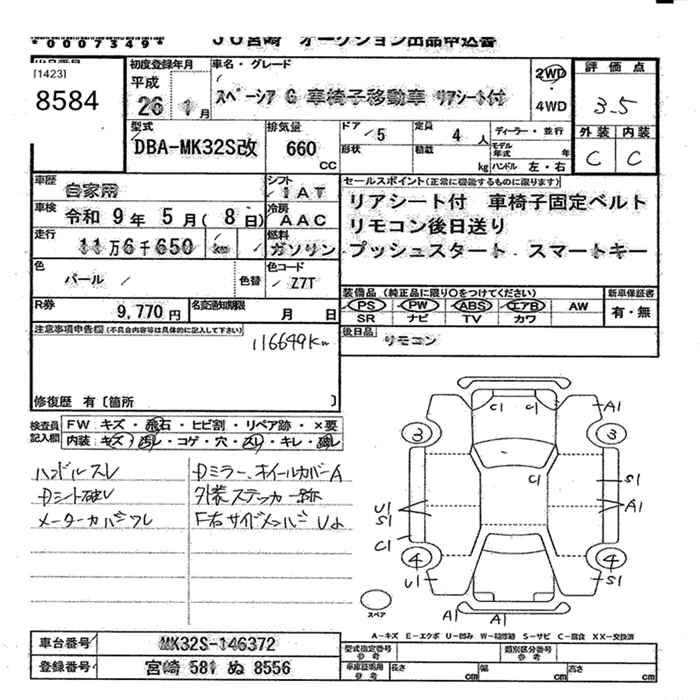 *0007349*
JU宮崎 オークション出品申込書
[1423]
8584
初度登録年月
平成
26 1 月
車名・グレード
スペーシア G 車椅子移動車 リアシート付
2WD
4WD
評価点
3.5
外装 内装
C C
型式
DBA-MK32S改
排気量
660
CC
ドア 5
形状
定員 4 人
積載 kg
ディーラー・並行
モデル年式 年
ハンドル 左・右
車歴
自家用
シフト
IAT
車検
令和 9年 5月( 8日)
冷房
AAC
走行
11万6千650 km
燃料
ガソリン
色
パール
色替
色コード
Z7T
R券 9,770円
名変通知期限 月 日
セールスポイント(正常に機能するものに限ります)
リアシート付 車椅子固定ベルト
リモコン後日送り
プッシュスタート スマートキー
装備品(純正品に限り○をつけてください)
PS PW ABS エアB AW
SR ナビ TV カワ
新車保証書
有・無
後日品
リモコン
注意事項申告欄(不具合内容等は具体的に記入して下さい)
116649Km
修復歴 有〔箇所 〕
検査員記入欄
FW キズ・飛石・ヒビ割・リペア跡・×要
内装:キズ・汚レ・コゲ・穴・スレ・キレ・破レ
ハンドルスレ
Dシート破レ
メーターカバーワレ
Dミラー、ホイールカバーA
外装ステッカー跡
F右サイドメンバーUよ
C1 C1
A1
3 3
C1
S1
A1
U1
S1
C1
4 4
U1
S1
A1 A1
スペア
A-キズ E-エクボ U-凹み W-補修跡 S-サビ C-腐食 XX-交換済
車台番号 MK32S-146372
登録番号 宮崎 581 ぬ 8556
型式指定番号
参考
類別区分番号
参考
車庫証明用
参考
長さ cm
幅 cm
高さ cm